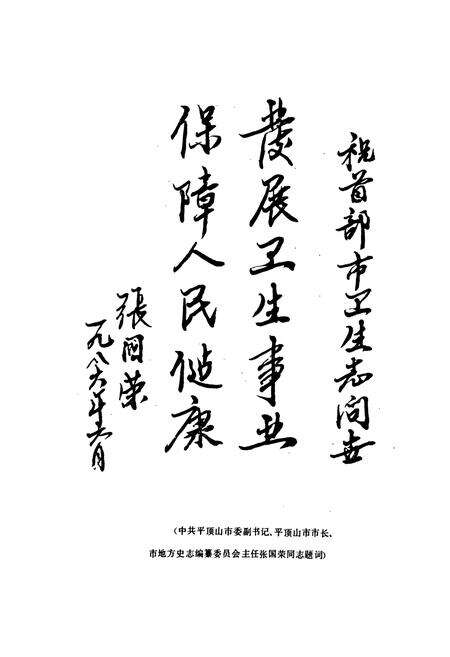 祝首部市卫生志问世
發展卫生事业
保障人民健康
張國荣
一九八六年六月
(中共平顶山市委副书记、平顶山市市长、
市地方史志编纂委员会主任张国荣同志题词)